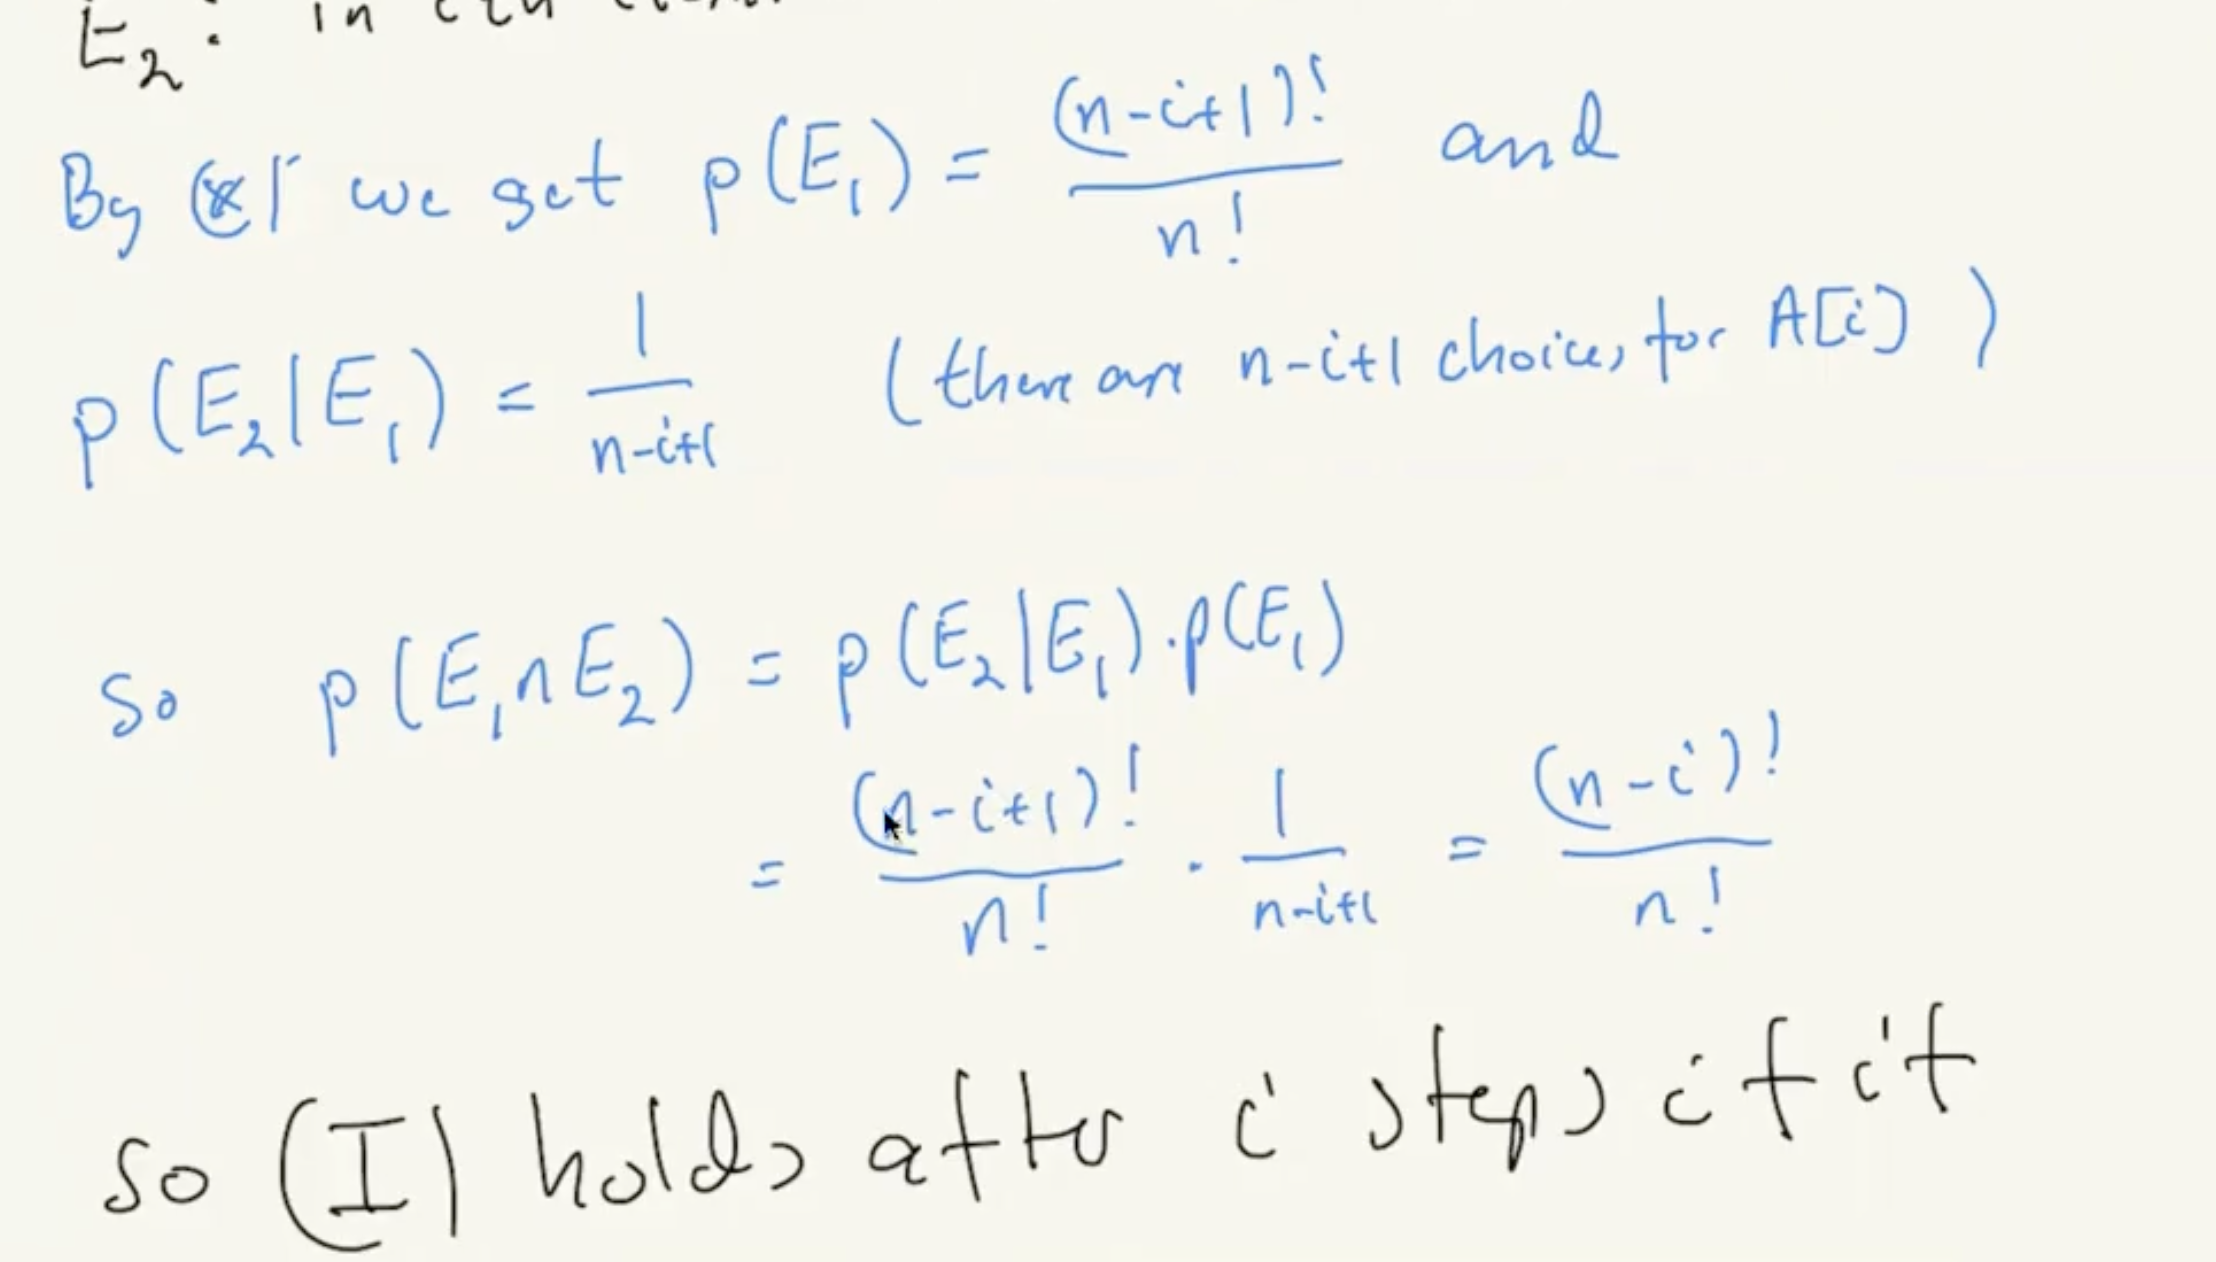 E₂: in
By (*) we get p(E₁) = (n-i+1)! / n! and
p(E₂|E₁) = 1 / n-i+1 (there are n-i+1 choices for A[i])
so p(E₁∩E₂) = p(E₂|E₁)·p(E₁)
= (n-i+1)! / n! · 1 / n-i+1 = (n-i)! / n!
so (I) holds after i steps if it